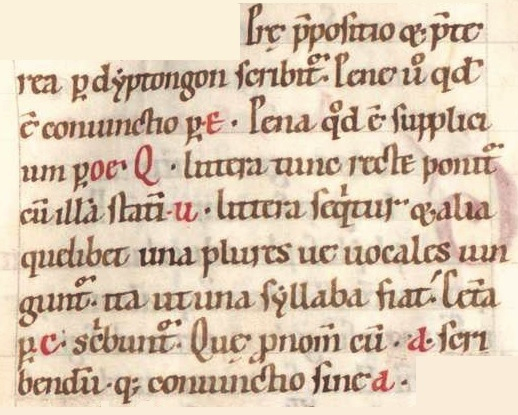 Prę p̄positio & p̄te
rea ꝑ dẏptongon scribit᷑. Pene ů qđ
ē coniunctio ꝑ E · Pena qd̊ ē supplici
um ꝑ oe· Q · littera tunc recte ponit᷑
cū illā stati· u · littera seqͥtur &alia
quelibet una plures ue uocales iun
gunt᷑· ita ut una sẏllaba fiat. Cetͣa
ꝑ e· scͥbunt᷑· Quę ꝓnom̄ cū · d· scri
bendū· q; coniunctio sine d ·